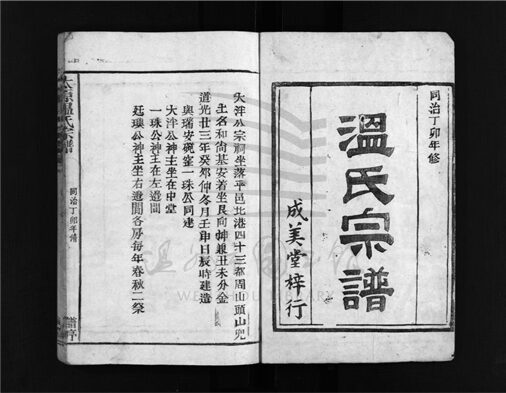 同治丁卯年修
溫氏宗譜
成美堂梓行
大泮公宗祠坐落平邑北港四十三都周山頭山兜
土名和尚基安着坐艮向坤兼丑未分金
道光廿三年癸卯仲冬月壬申日辰時建造
與瑞安碗窰一珠公同建
大泮公神主坐在中堂
一珠公神主在左邉間
廷瓊公神主坐右邉間各房每年春秋二祭
太原溫氏宗譜
同治丁卯年清
譜序